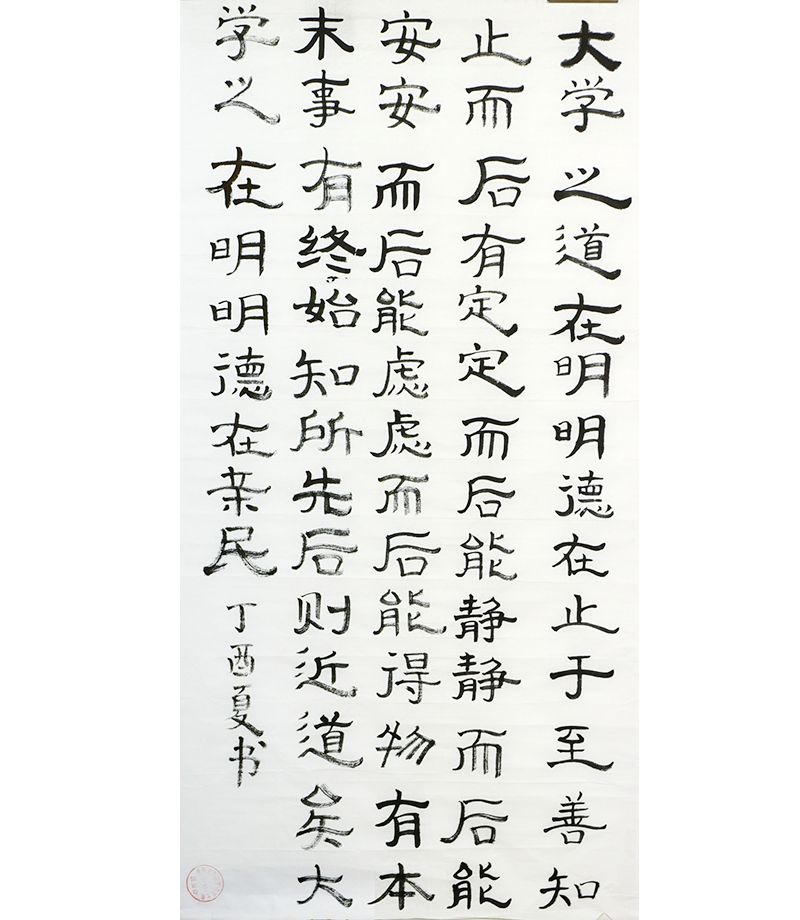 大学之道在明明德在止于至善知
止而后有定定而后能静静而后能
安安而后能虑虑而后能得物有本
末事有终始知所先后则近道矣大
学之在明明德在亲民
丁酉夏书